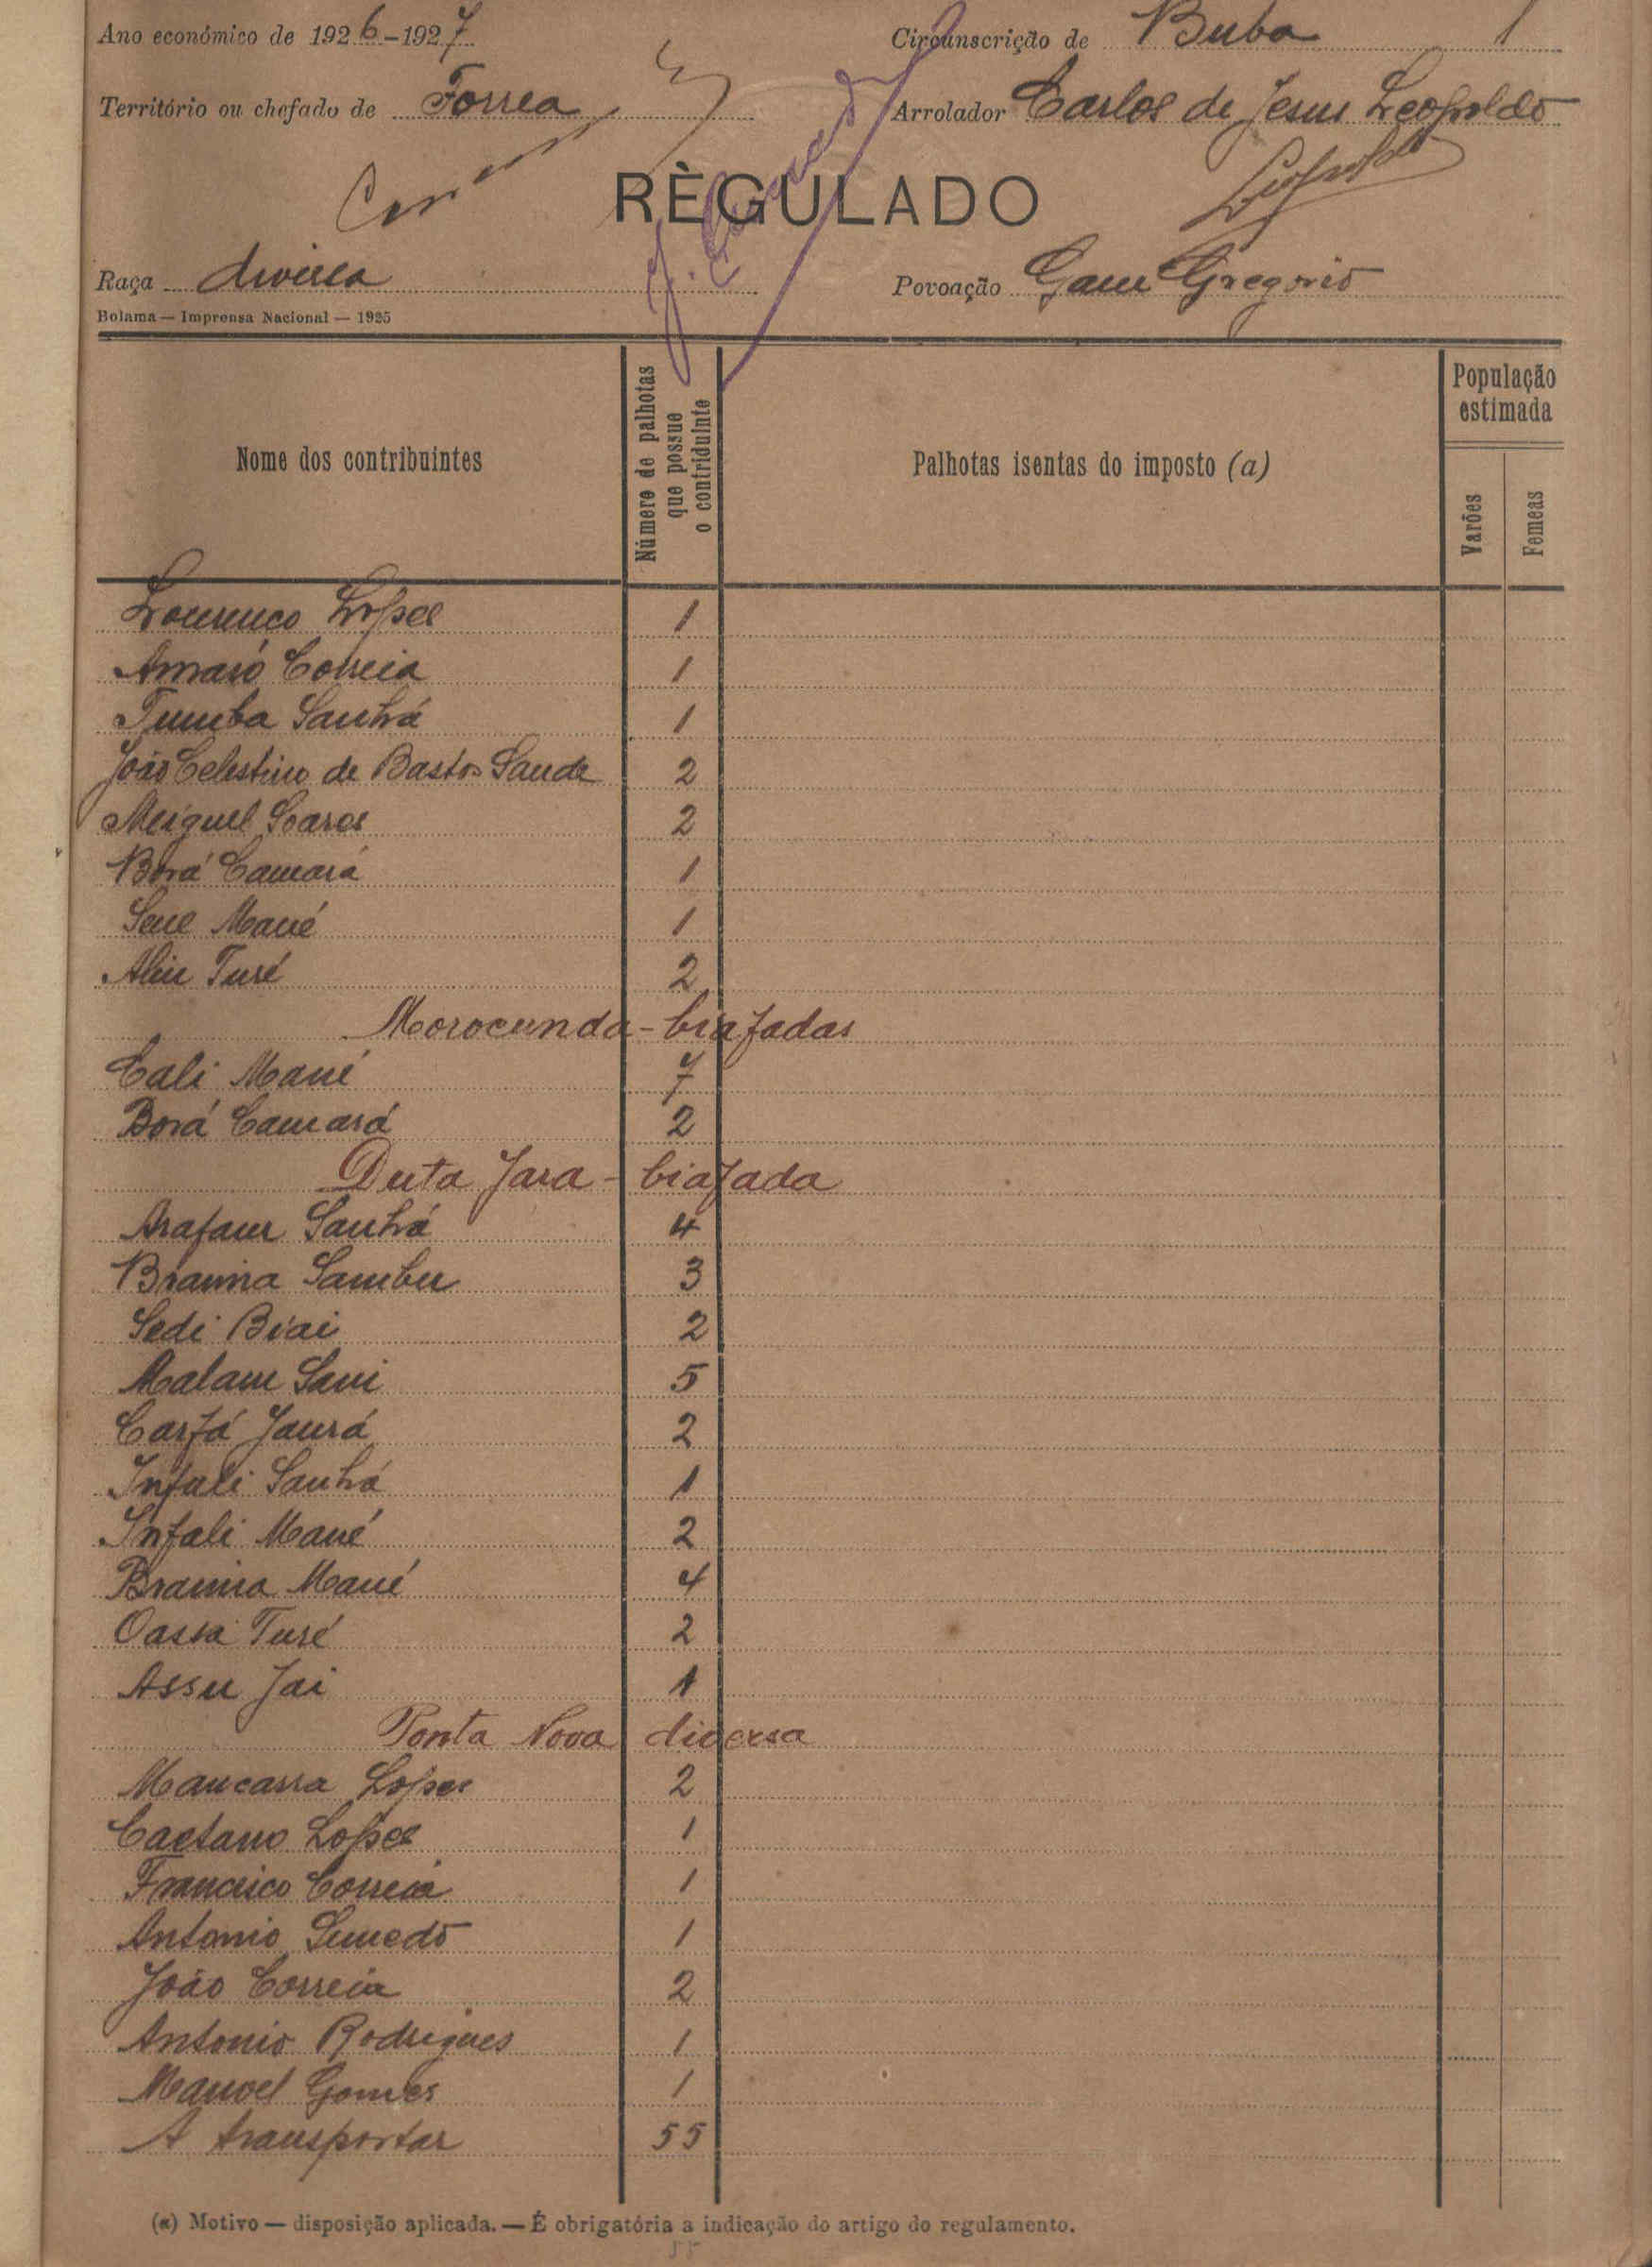 Ano económico de 1926-1927 Circunscrição de Buba 1
Território ou chefado de Forrea Arrolador Carlos de Jesus Leopoldo
RÈGULADO
Raça diversa Povoação Gam Gregorio
Bolama — Imprensa Nacional — 1925
Nome dos contribuintes Número de palhotas que possue o contriduinte Palhotas isentas do imposto (a) População estimada Varões Femeas
Lourenço Lopes 1
Amaro Correia 1
Tumba Sanhá 1
João Celestino de Bastos Sande 2
Meiguel Soares 2
Borá Camará 1
Sene Mané 1
Aliu Turé 2
Morocunda - biafadas
Cali Mané 7
Borá Camará 2
Duta Jara - biafada
Arafam Sanhá 4
Braima Sambu 3
Sedi Biai 2
Malam Sani 5
Carfá Jaurá 2
Infali Sanhá 1
Infali Mané 2
Braima Mané 4
Cassá Turé 2
Assu Jai 1
Ponta Nova diversa
Mancassa Lopes 2
Caetano Lopes 1
Francisco Correia 1
Antonio Semedo 1
João Correia 2
Antonio Rodrigues 1
Manoel Gomes 1
A transportar 55
(a) Motivo — disposição aplicada. — É obrigatória a indicação do artigo do regulamento.
55